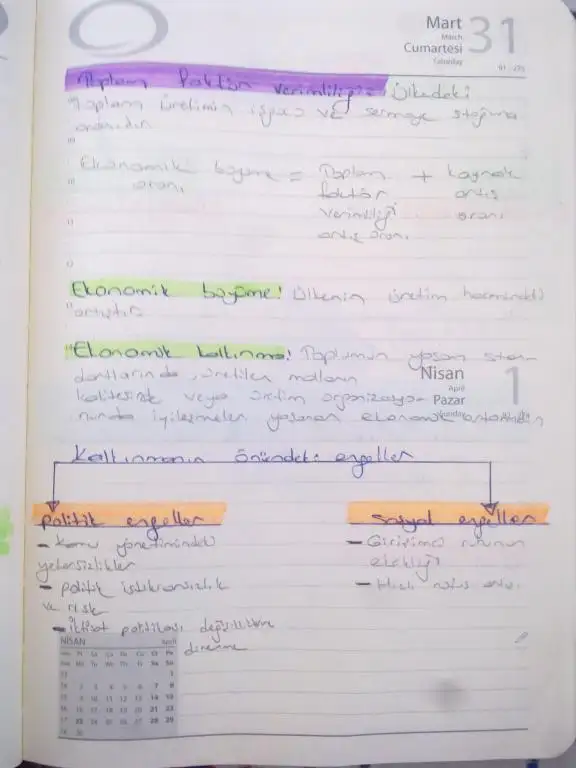 Mart
March
31
Cumartesi
Saturday
Toplam faktör verimliliği: Ülkedeki
toplam üretimin işgücü ve sermaye stoğuna
oranıdır
Ekonomik büyüme = Toplam + kaynak
oranı faktör artış
verimliliği oranı
artış oranı
Ekonomik büyüme: Ülkenin üretim hacmindeki
artıştır
Ekonomik kalkınma: Toplumun yaşam stan-
dartlarında, üretilen malların
Nisan
April
1
kalitesinde veya üretim organizasyo-
Pazar
Sunday
nunda iyileşmeler yaşanan ekonomik
Kalkınmanın önündeki engeller
politik engeller
sosyal engeller
- kamu yönetimindeki
yetersizlikler
- Girişimci ruhunun
eksikliği
- politik istikrarsızlık
ve risk
- Hızlı nüfus artışı
- iktisat politikası değişikliklerine
direnme
NİSAN April